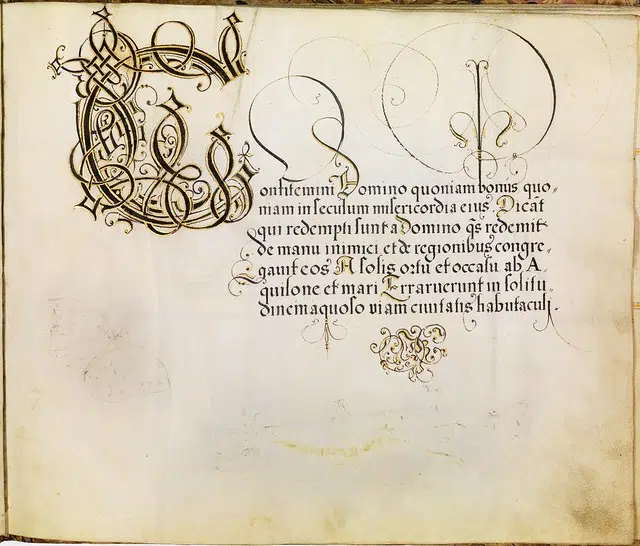 Confitemini Domino quoniam bonus quo=
niam in seculum misericordia eius. Dicāt
qui redempti sunt a Domino qs redemit
de manu inimici et de regionibus congre=
gauit eos A solis ortu et occasu ab A=
quilone et mari Errauerunt in solitu=
dinem aquoso viam ciuitatis habitaculi.